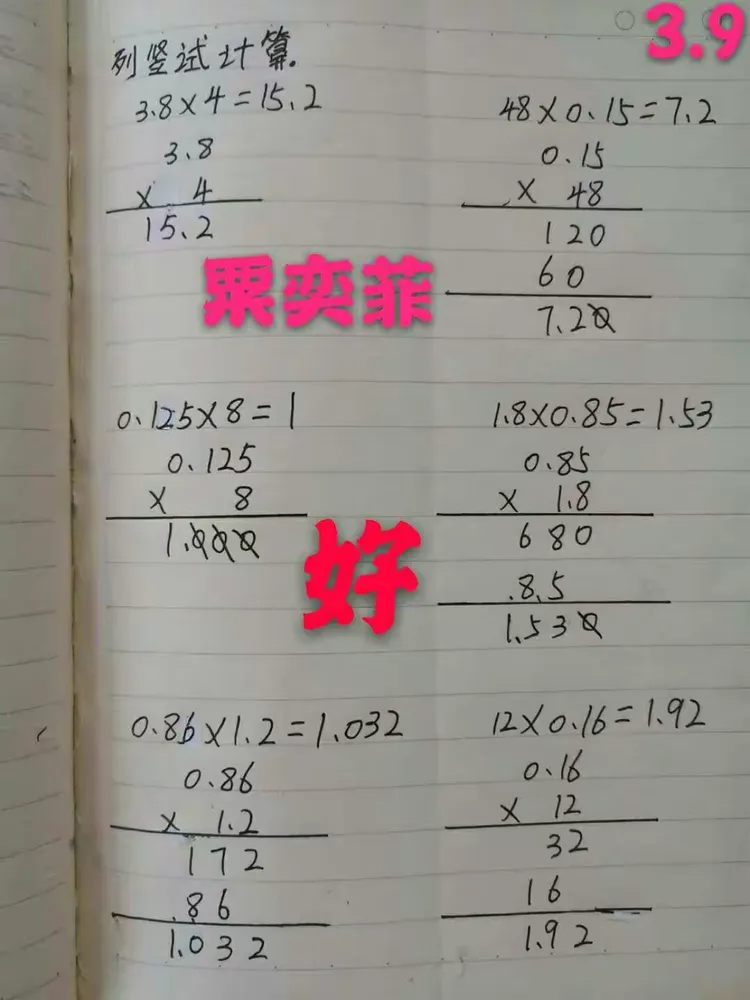 3.9
列竖试计算.
3.8×4=15.2
3.8
× 4
15.2
48×0.15=7.2
0.15
× 48
120
60
7.20
粟奕菲
0.125×8=1
0.125
× 8
1.000
1.8×0.85=1.53
0.85
× 1.8
680
.8.5
1.530
好
0.86×1.2=1.032
0.86
× 1.2
172
.86
1.032
12×0.16=1.92
0.16
× 12
32
16
1.92